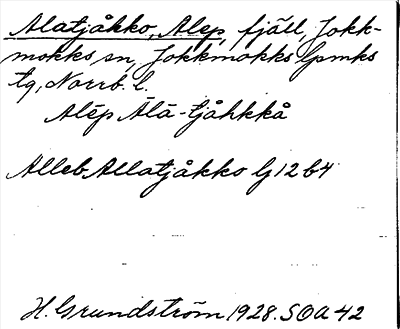 Alatjåkko, Alep, fjäll, Jokk-
mokks sn, Jokkmokks lpmks
tg, Norrb. l.
Alēp Ālā-tjåhkkå
Alleb Allatjåkko G 12 b4
H. Grundström 1928. SOA 42